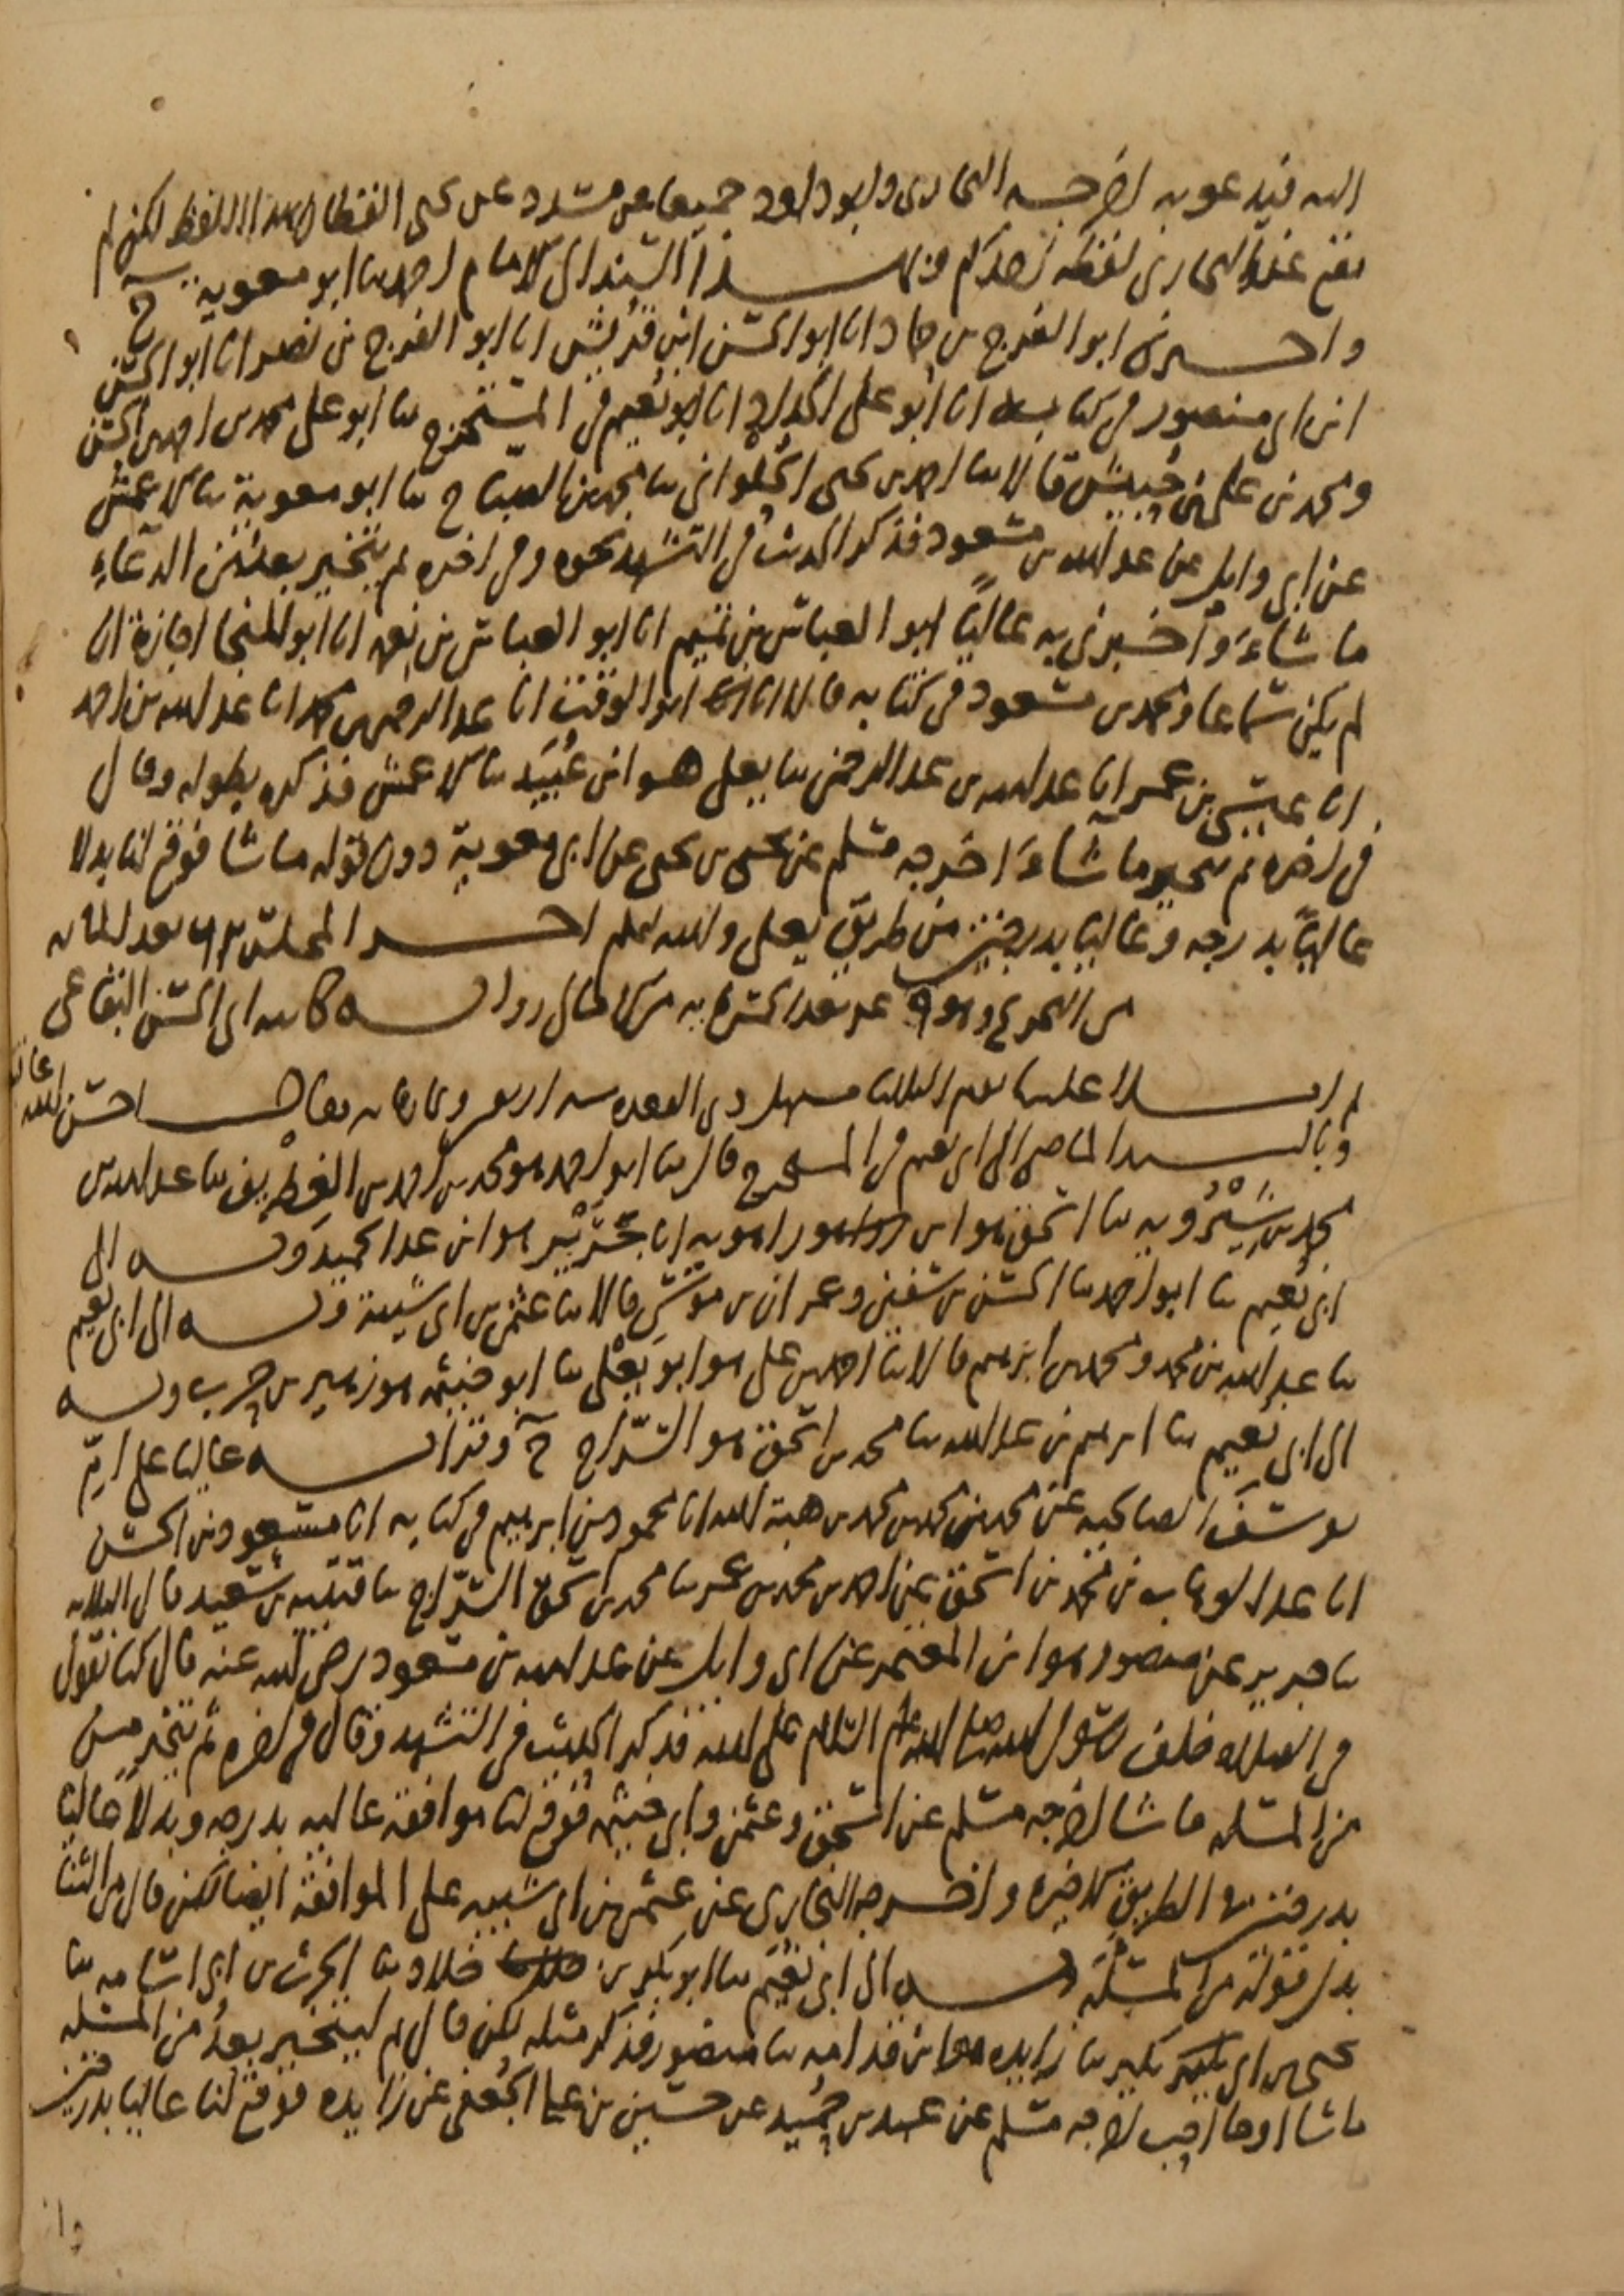 اليه فيدعو به اخرجه البخاري وابو داود جميعا عن مسدد عن يحيى القطان بهذا اللفظ لكن لم
يقع عند البخاري لفظة احدكم وبهذا السند الى الامام احمد ثنا ابو معوية ح
واخبرني ابو الفرج بن حماد انا ابو الحسن ابن قريش انا ابو الفرج بن نصر انا ابو الحسن
ابن ابي منصور في كتابه انا ابو علي الحداد انا ابو نعيم في المستخرج ثنا ابو علي محمد بن احمد بن الحسن
ومحمد بن علي بن حبيش قالا ثنا احمد بن يحيى الحلواني ثنا محمد بن الصباح ثنا ابو معوية ثنا الاعمش
عن ابي وايل عن عبد الله بن مسعود فذكر الحديث في التشهد نحوه وفي اخره ثم يتخير بعد من الدعاء
ما شاء واخبرني به عاليا ابو العباس بن تميم انا ابو العباس بن نعمة انا ابو المنجا اجازة ان
لم يكن سماعا ومحمد بن مسعود في كتابه قالا انا ابو الوقت انا عبد الرحمن بن محمد انا عبد الله بن احمد
انا عيسى بن عمر انا عبد الله بن عبد الرحمن ثنا يعلى هو ابن عبيد ثنا الاعمش فذكره بطوله وقال
في اخره ثم يتخير ما شاء اخرجه مسلم عن يحيى بن يحيى عن ابي معوية دون قوله ما شا فوقع لنا بدلا
عاليا بدرجة وعاليا بدرجتين من طريق يعلى والله اعلم اخر المجلس بعد المايه
من التخريج وهو بعد من الامالي رواية كاتبه ابي الحسن البقاعي
ثم املا علينا يوم الثلثا مستهل ذي القعده سنه اربعين وثمان مايه فقال احسن الله عاقبته
وبالسند الماضي الى ابي نعيم في المستخرج قال ثنا ابو احمد هو محمد بن احمد بن الغطريف ثنا عبد الله بن
محمد بن شيرويه ثنا اسحق هو ابن راهويه انا جرير هو ابن عبد الحميد وبه الى
ابي نعيم ثنا ابو احمد ثنا الحسن بن سفين وعمران بن موسى قالا ثنا عثمن بن ابي شيبة وبه الى ابي نعيم
ثنا عبد الله بن محمد ومحمد بن ابرهيم قالا ثنا احمد بن علي هو ابو يعلى ثنا ابو خيثمه هو زهير بن حرب وبه
الى ابي نعيم ثنا ابرهيم بن عبد الله ثنا محمد بن اسحق هو السراج ح وقرات عاليا على ام
يوسف الصالحيه عن محمد بن محمد بن محمد بن هبة الله انا محمود بن ابرهيم في كتابه انا مسعود بن الحسن
انا عبد الوهاب بن محمد بن اسحق عن احمد بن محمد بن عمر ثنا محمد بن اسحق السراج ثنا قتيبه بن سعيد قال الثلاثه
ثنا جرير عن منصور هو ابن المعتمر عن ابي وايل عن عبد الله بن مسعود رضي الله عنه قال كنا نقول
في الصلاه خلف رسول الله صلى الله عليه وسلم السلام على الله فذكر الحديث في التشهد وقال في اخره ثم يتخير من
من المسله ما شا اخرجه مسلم عن اسحق وعثمن وابي خيثمه فوقع لنا موافقة عاليه بدرجه وبدلا عاليا
بدرجتين والطريق الاخيره واخرجه البخاري عن عثمن بن ابي شيبه على الموافقة ايضا لكن قال من الثنا
بدل قوله من المسلة وبه الى ابي نعيم ثنا ابو بكر بن خلاد ثنا الحرث بن ابي اسامه ثنا
يحيى بن ابي بكير ثنا زايده هو ابن قدامه ثنا منصور فذكر مثله لكن قال ثم ليتخير بعد من المسله
ما شا او ما احب اخرجه مسلم عن عبد بن حميد عن حسين بن علي الجعفي عن زايده فوقع لنا عاليا بدرجتين
وا